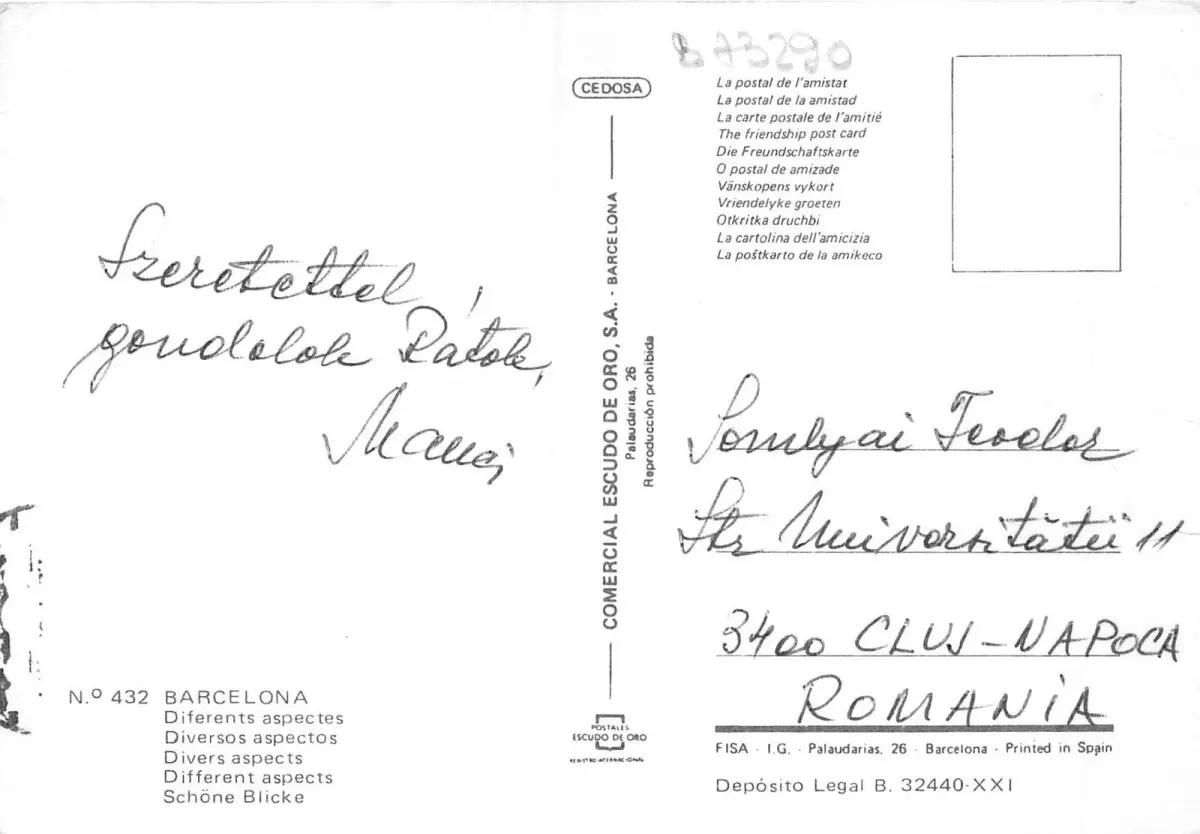 B 73290
CEDOSA
La postal de l'amistat
La postal de la amistad
La carte postale de l'amitié
The friendship post card
Die Freundschaftskarte
O postal de amizade
Vänskopens vykort
Vriendelyke groeten
Otkritka druchbi
La cartolina dell'amicizia
La poŝtkarto de la amikeco
Szeretettel
gondolok Rátok,
COMERCIAL ESCUDO DE ORO, S.A. - BARCELONA
Palaudarias, 26
Reproducción prohibida
Somlyai Teodor
Str Universității 11
3400 CLUJ-NAPOCA
ROMANIA
N.º 432 BARCELONA
Diferents aspectes
Diversos aspectos
Divers aspects
Different aspects
Schöne Blicke
POSTALES
ESCUDO DE ORO
REGISTRO INTERNACIONAL
FISA - I.G. - Palaudarias, 26 - Barcelona - Printed in Spain
Depósito Legal B. 32440-XXI